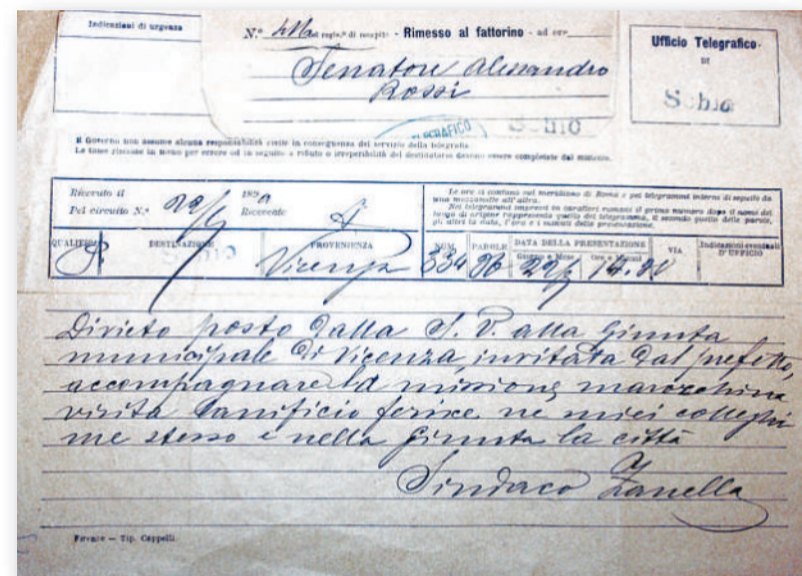 Indicazioni di urgenza
N.° del regis.° di recapito - Rimesso al fattorino - ad ore
Senatore Alessandro
Rossi
Ufficio Telegrafico
DI
Schio
Schio
Il Governo non assume alcuna responsabilità civile in conseguenza del servizio della telegrafia.
Le tasse riscosse in meno per errore od in seguito a rifiuto o irreperibilità del destinatario devono essere completate dal mittente.
Ricevuto il 189
Pel circuito N.° Ricevente
Le ore si contano sul meridiano di Roma e pei telegrammi interni di seguito da
una mezzanotte all'altra.
Nei telegrammi impressi in caratteri romani il primo numero dopo il nome del
luogo di origine rappresenta quello del telegramma, il secondo quello delle parole,
gli altri la data, l'ora e i minuti della presentazione.
QUALIFICA DESTINAZIONE PROVENIENZA NUM. PAROLE DATA DELLA PRESENTAZIONE VIA Indicazioni eventuali
Giorno e Mese Ore e Minuti D'UFFICIO
Schio Vicenza 334 26
Divieto posto dalla S. V. alla Giunta
municipale di Vicenza, invitata dal prefetto,
accompagnare la missione marocchina
visita lanificio ferisce ne miei colleghi
me stesso e nella Giunta la città
Sindaco Zanella
Firenze — Tip. Cappelli.